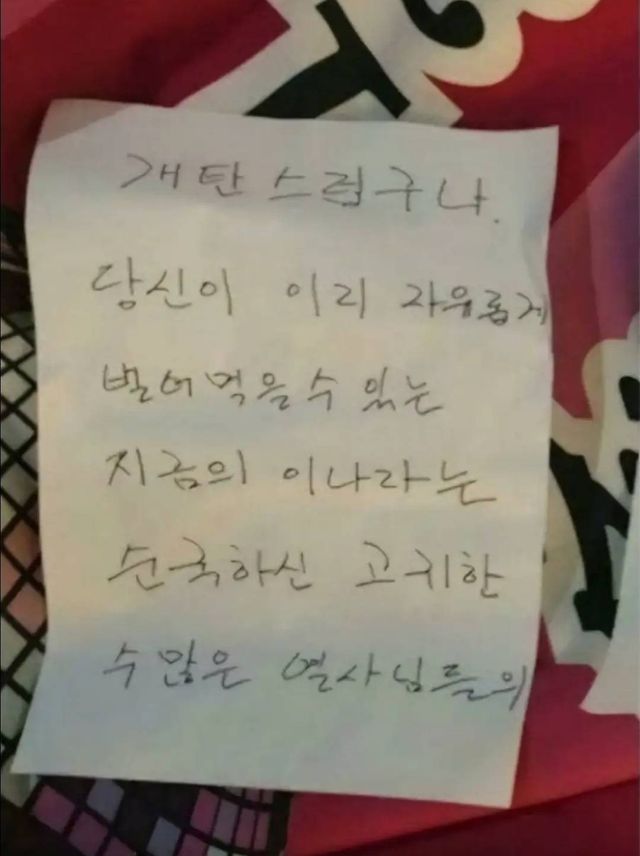 개탄스럽구나.
당신이 이리 자유롭게
벌어먹을수 있는
지금의 이나라는
순국하신 고귀한
수많은 열사님들의